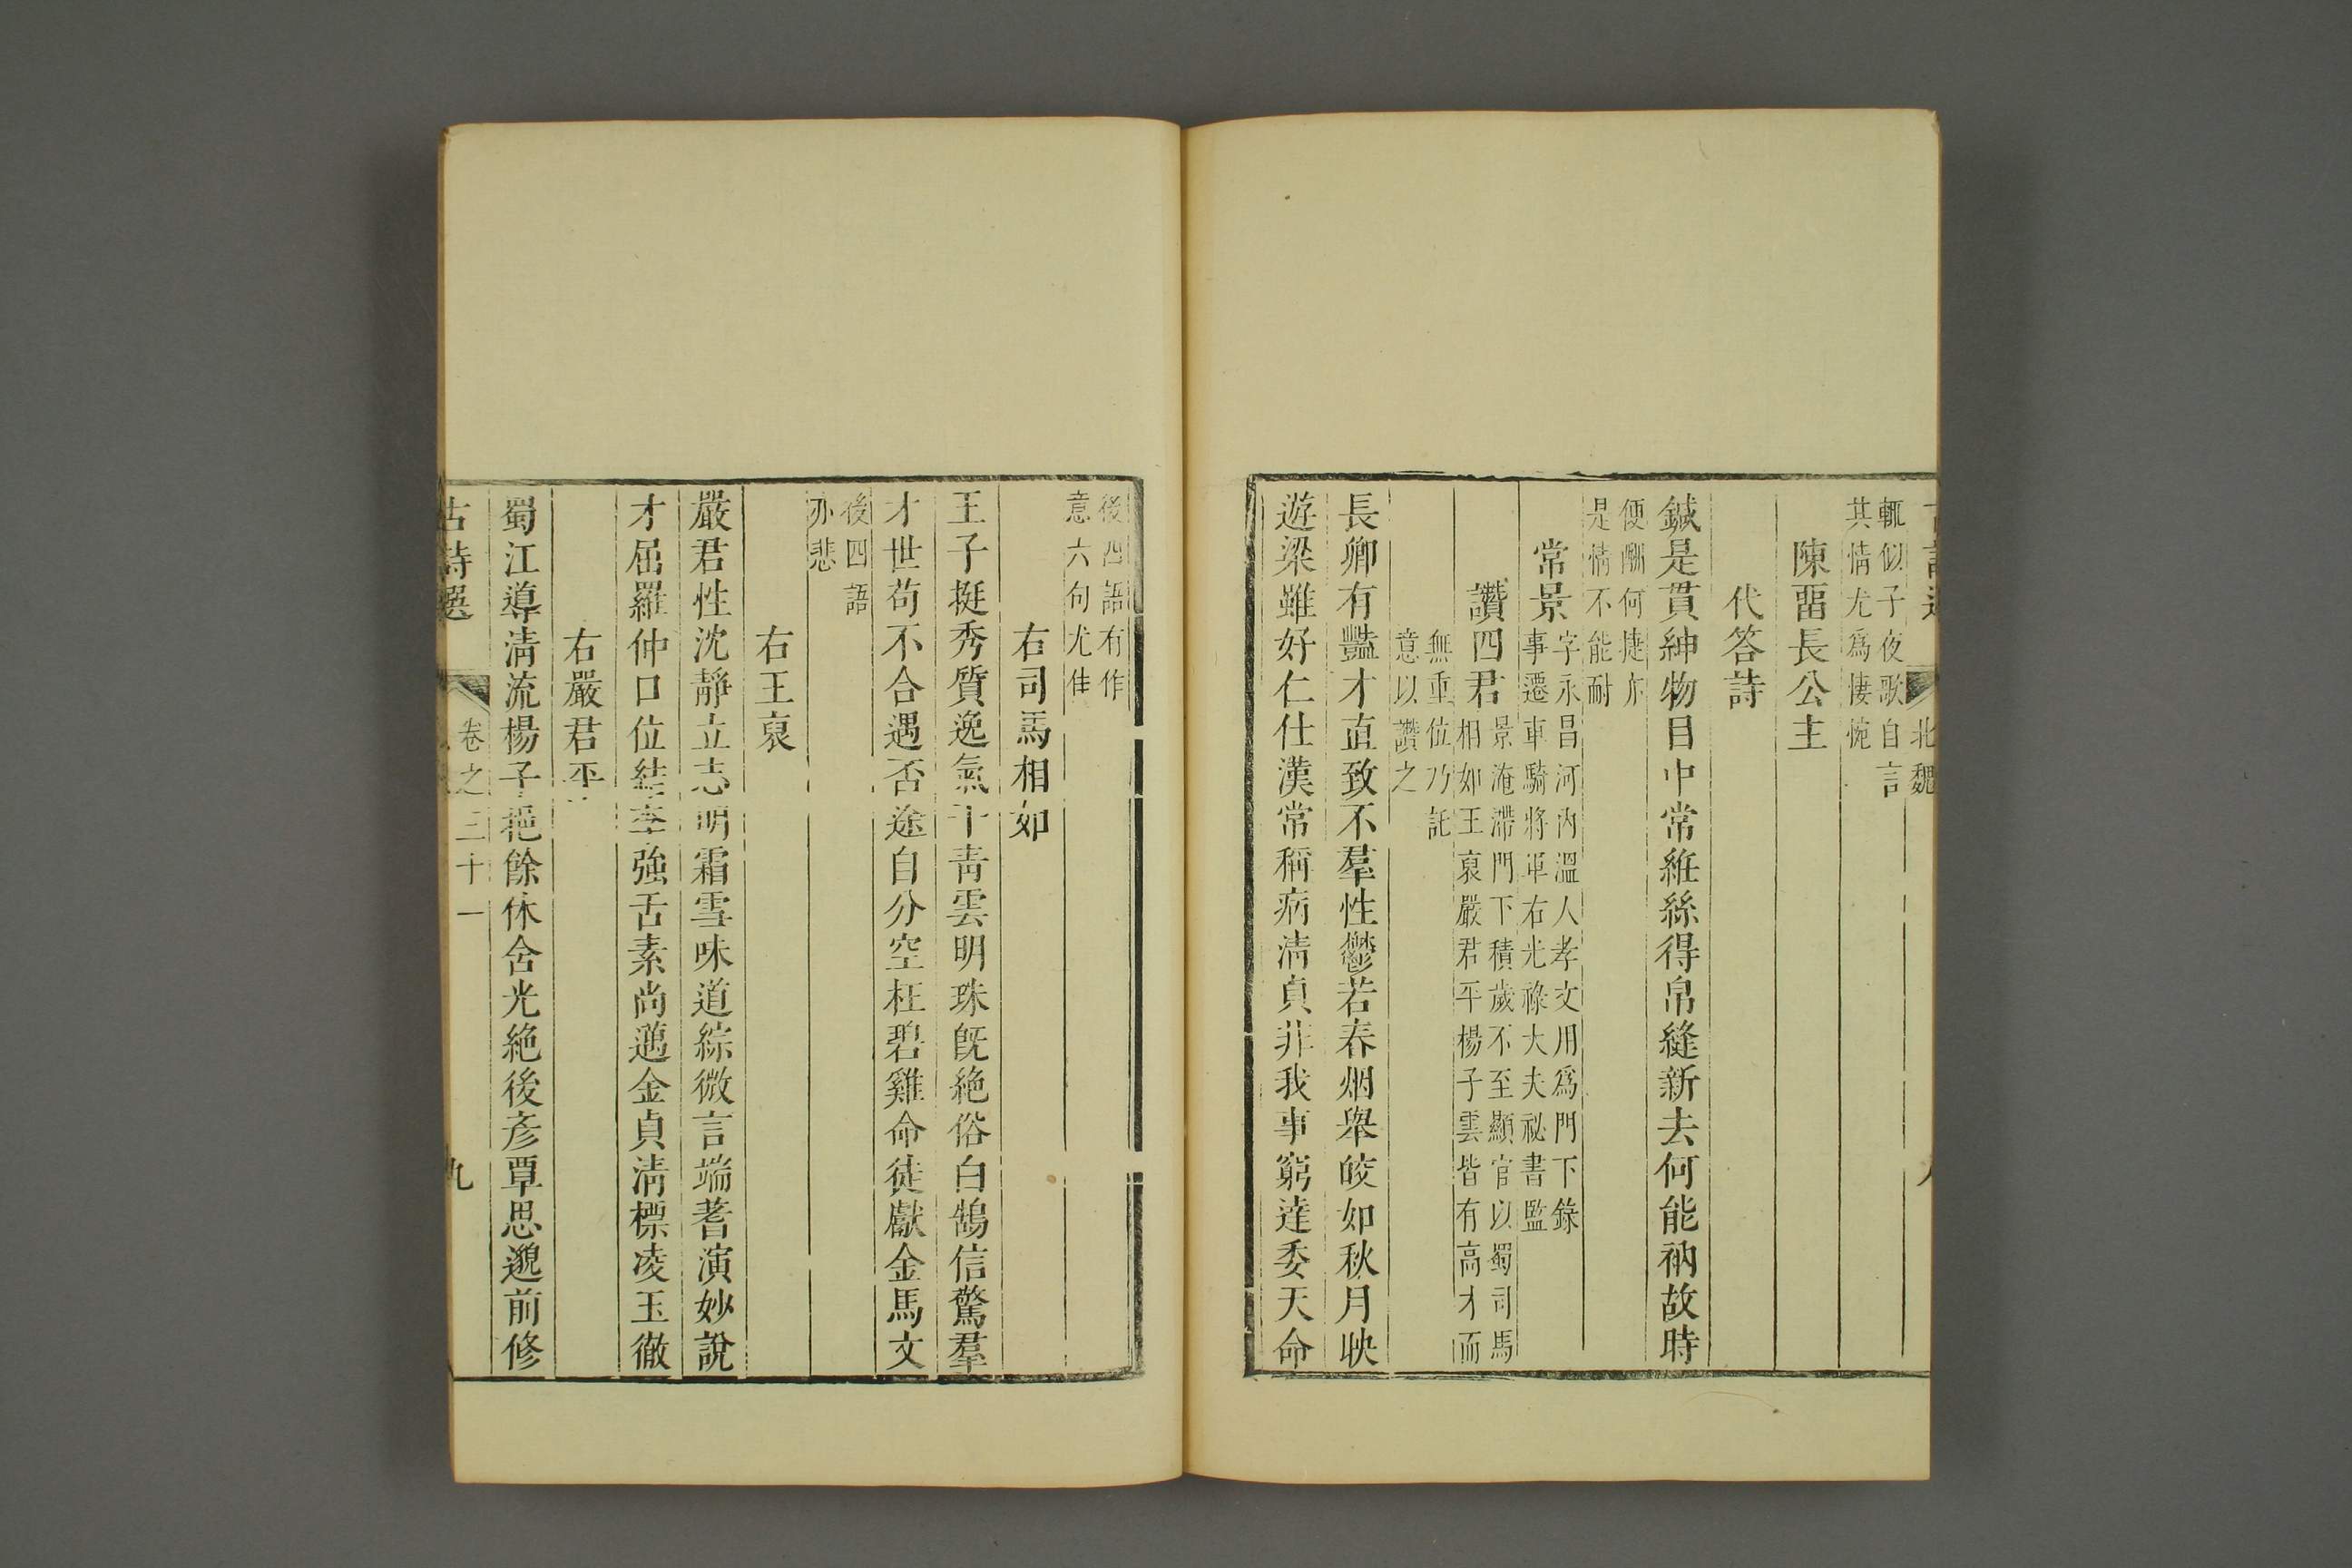 古詩選 北魏 八
輒似子夜歌自言
其情尤爲悽惋
陳畱長公主
代答詩
鍼是貫紳物目中常維絲得帛縫新去何能衲故時
便酬何捷亦
是情不能耐
常景
字永昌河內溫人孝文用爲門下錄
事遷車騎將軍右光祿大夫祕書監
讚四君
景淹滯門下積歲不至顯官以蜀司馬
相如王裒嚴君平楊子雲皆有高才而
無重位乃託
意以讚之
長卿有豔才直致不羣性鬱若春烟舉皎如秋月映
遊梁雖好仁仕漢常稱病淸貞非我事窮達委天命
後四語有作
意六句尤佳
右司馬相如
王子挺秀質逸氣干靑雲明珠旣絕俗白鵠信驚羣
才世苟不合遇否途自分空枉碧雞命徒獻金馬文
後四語
亦悲
右王裒
嚴君性沈靜立志明霜雪味道綜微言端蓍演妙說
才屈羅仲口位結李強舌素尚邁金貞淸標凌玉徹
右嚴君平
蜀江導淸流楊子挹餘休含光絕後彥覃思邈前修
古詩選 卷之三十一 九